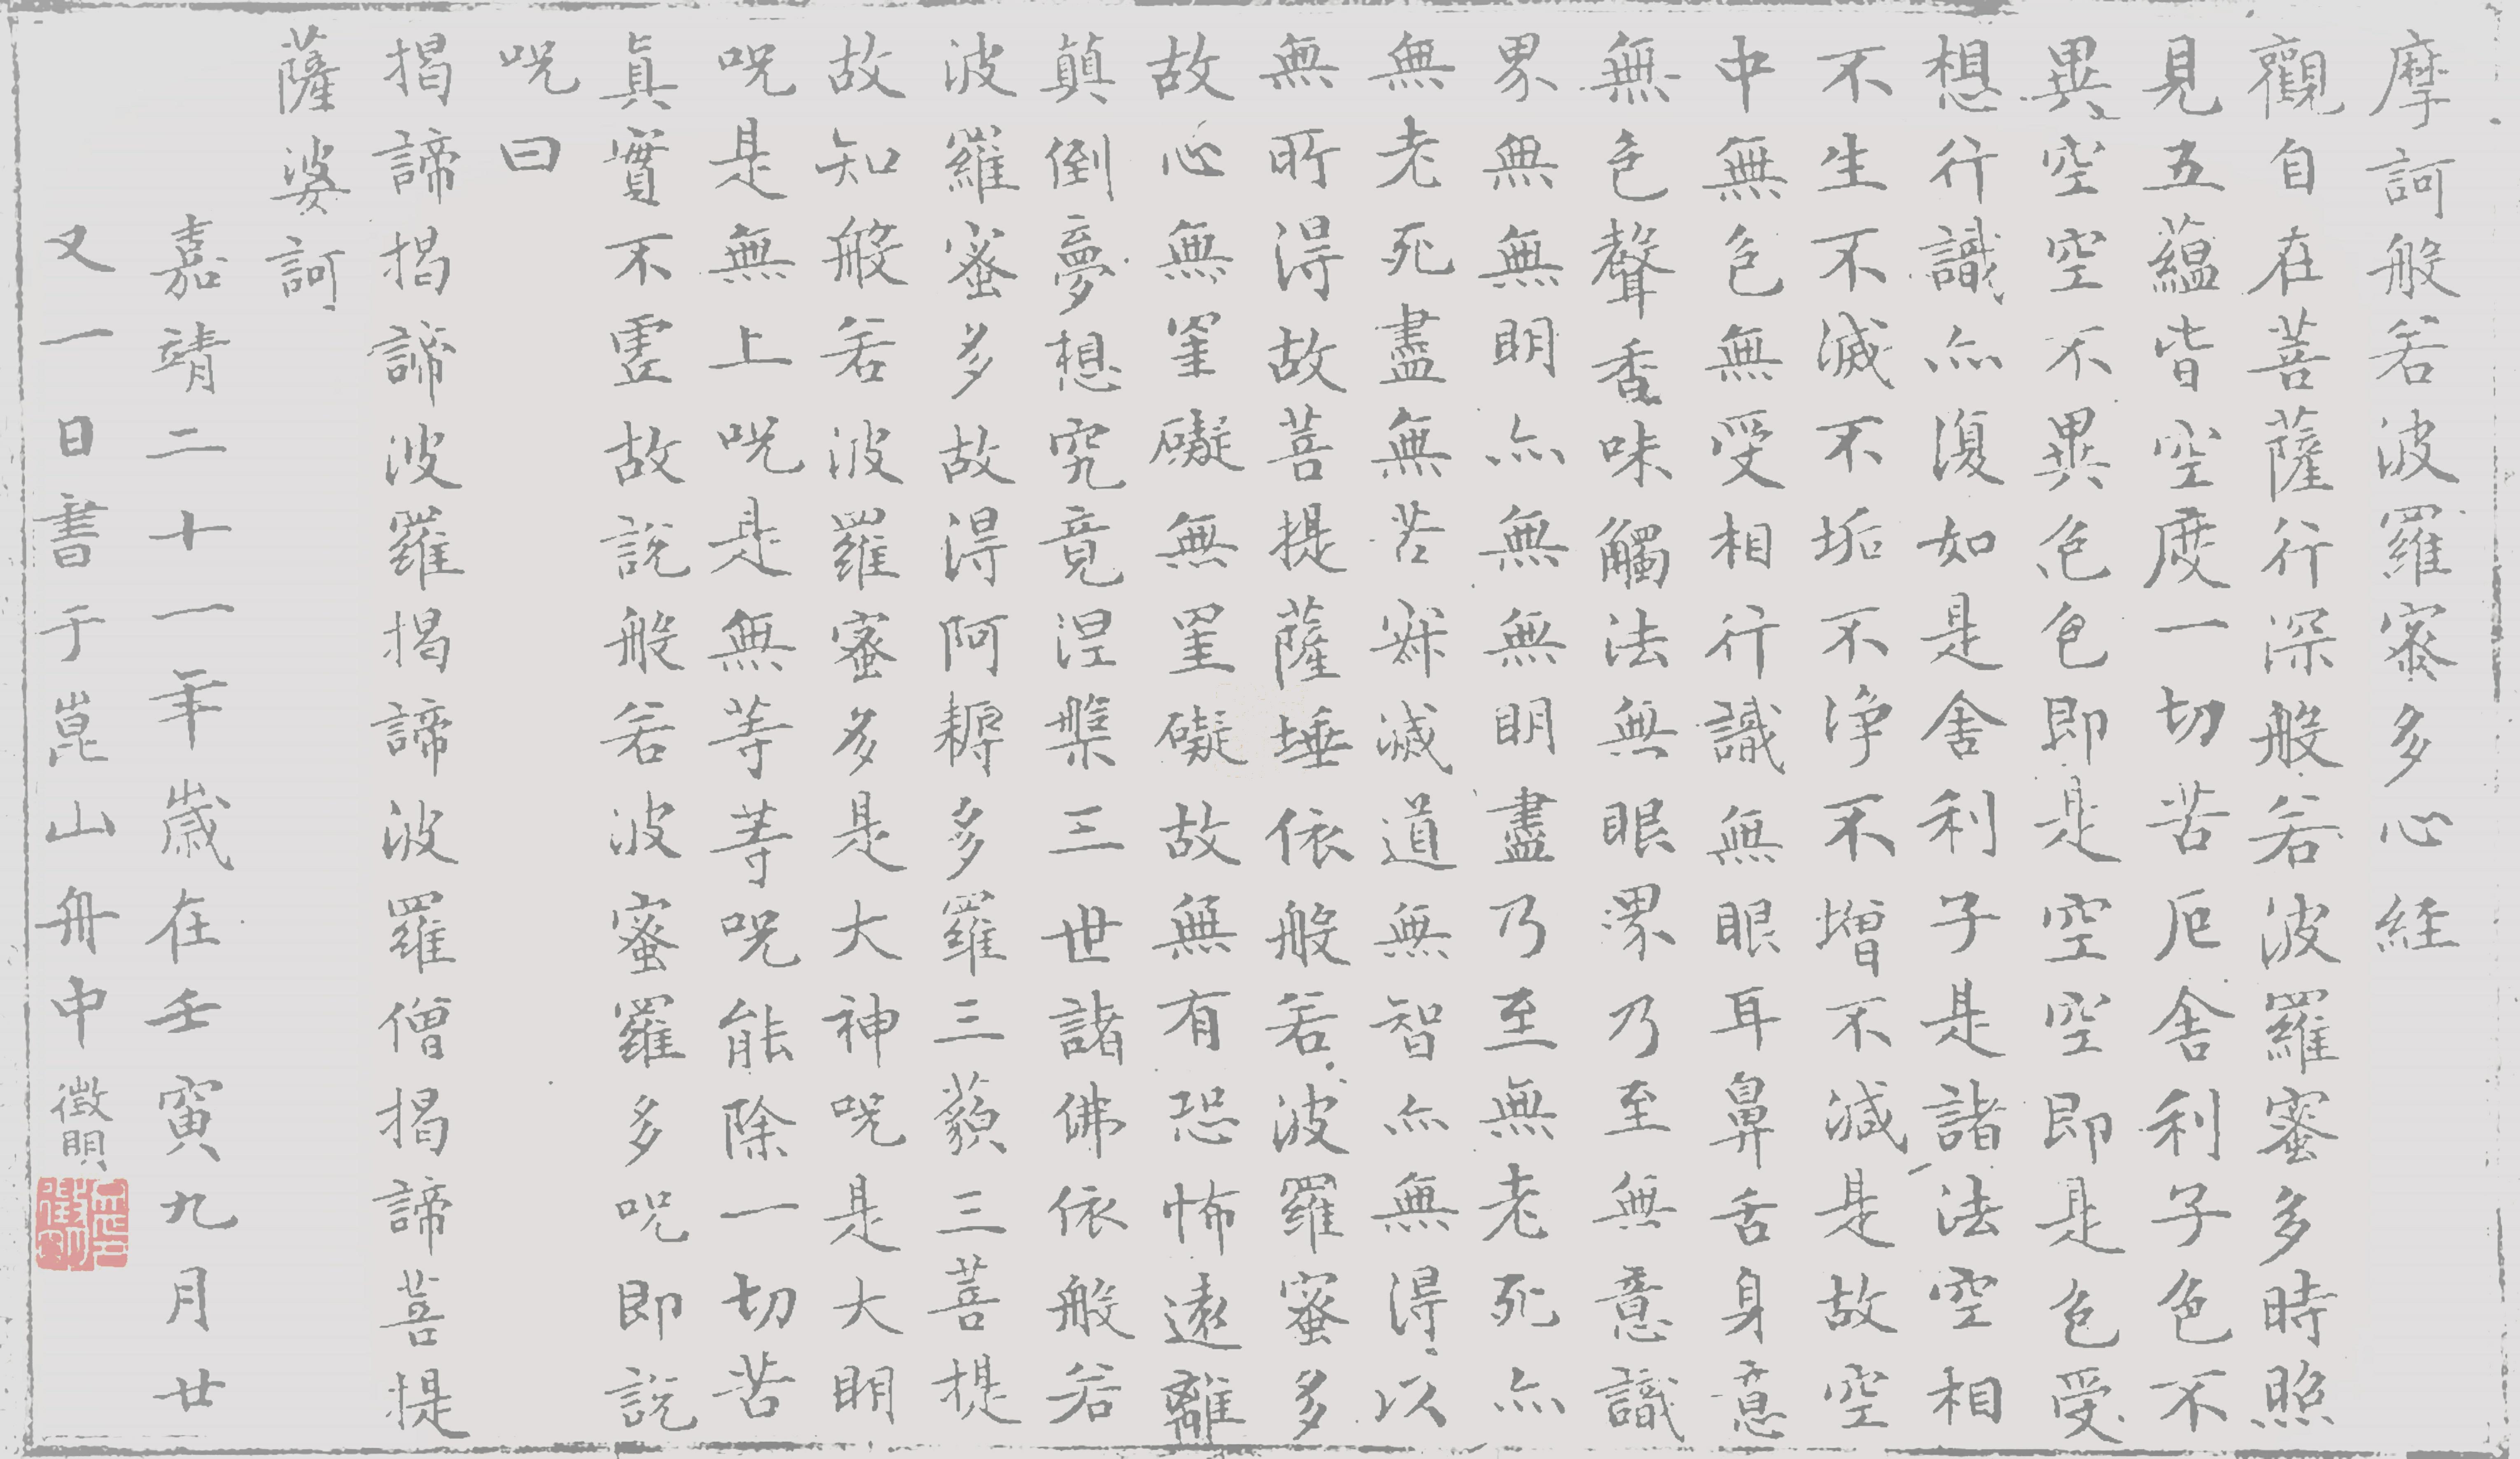 摩訶般若波羅蜜多心経
觀自在菩薩行深般若波羅蜜多時照
見五蘊皆空度一切苦厄舍利子色不
異空空不異色色即是空空即是色受
想行識亦復如是舍利子是諸法空相
不生不滅不垢不淨不增不減是故空
中無色無受相行識無眼耳鼻舌身意
無色聲香味觸法無眼界乃至無意識
界無無明亦無無明盡乃至無老死亦
無老死盡無苦寂滅道無智亦無得以
無所得故菩提薩埵依般若波羅蜜多
故心無罣礙無罣礙故無有恐怖遠離
顛倒夢想究竟涅槃三世諸佛依般若
波羅蜜多故得阿耨多羅三藐三菩提
故知般若波羅蜜多是大神呪是大明
呪是無上呪是無等等呪能除一切苦
眞實不虛故說般若波蜜羅多呪即說
呪曰
揭諦揭諦波羅揭諦波羅僧揭諦菩提
薩婆訶
嘉靖二十一年歲在壬寅九月廿
又一日書于崑山舟中 徵明